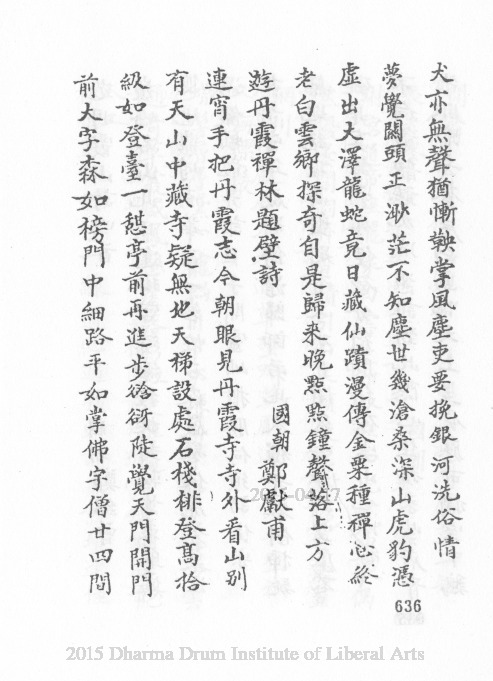 犬亦無聲猶慚鞅掌風塵吏要挽銀河洗俗情
夢覺關頭正渺茫不知塵世幾滄桑深山虎豹憑
虛出大澤龍蛇竟日藏仙蹟漫傳金粟種禪心終
老白雲鄉探奇自是歸来晚㸃㸃鐘聲落上方
遊丹霞禪林題壁詩
國朝鄭獻甫
連宵手把丹霞志今朝眼見丹霞寺寺外看山別
有天山中藏寺疑無地天梯設處石棧排登高拾
級如登臺一憇亭前再進步谽谺陡覺天門開門
前大字森如榜門中細路平如掌佛字僧廿四間
636
2015 Dharma Drum Institute of Liberal Arts